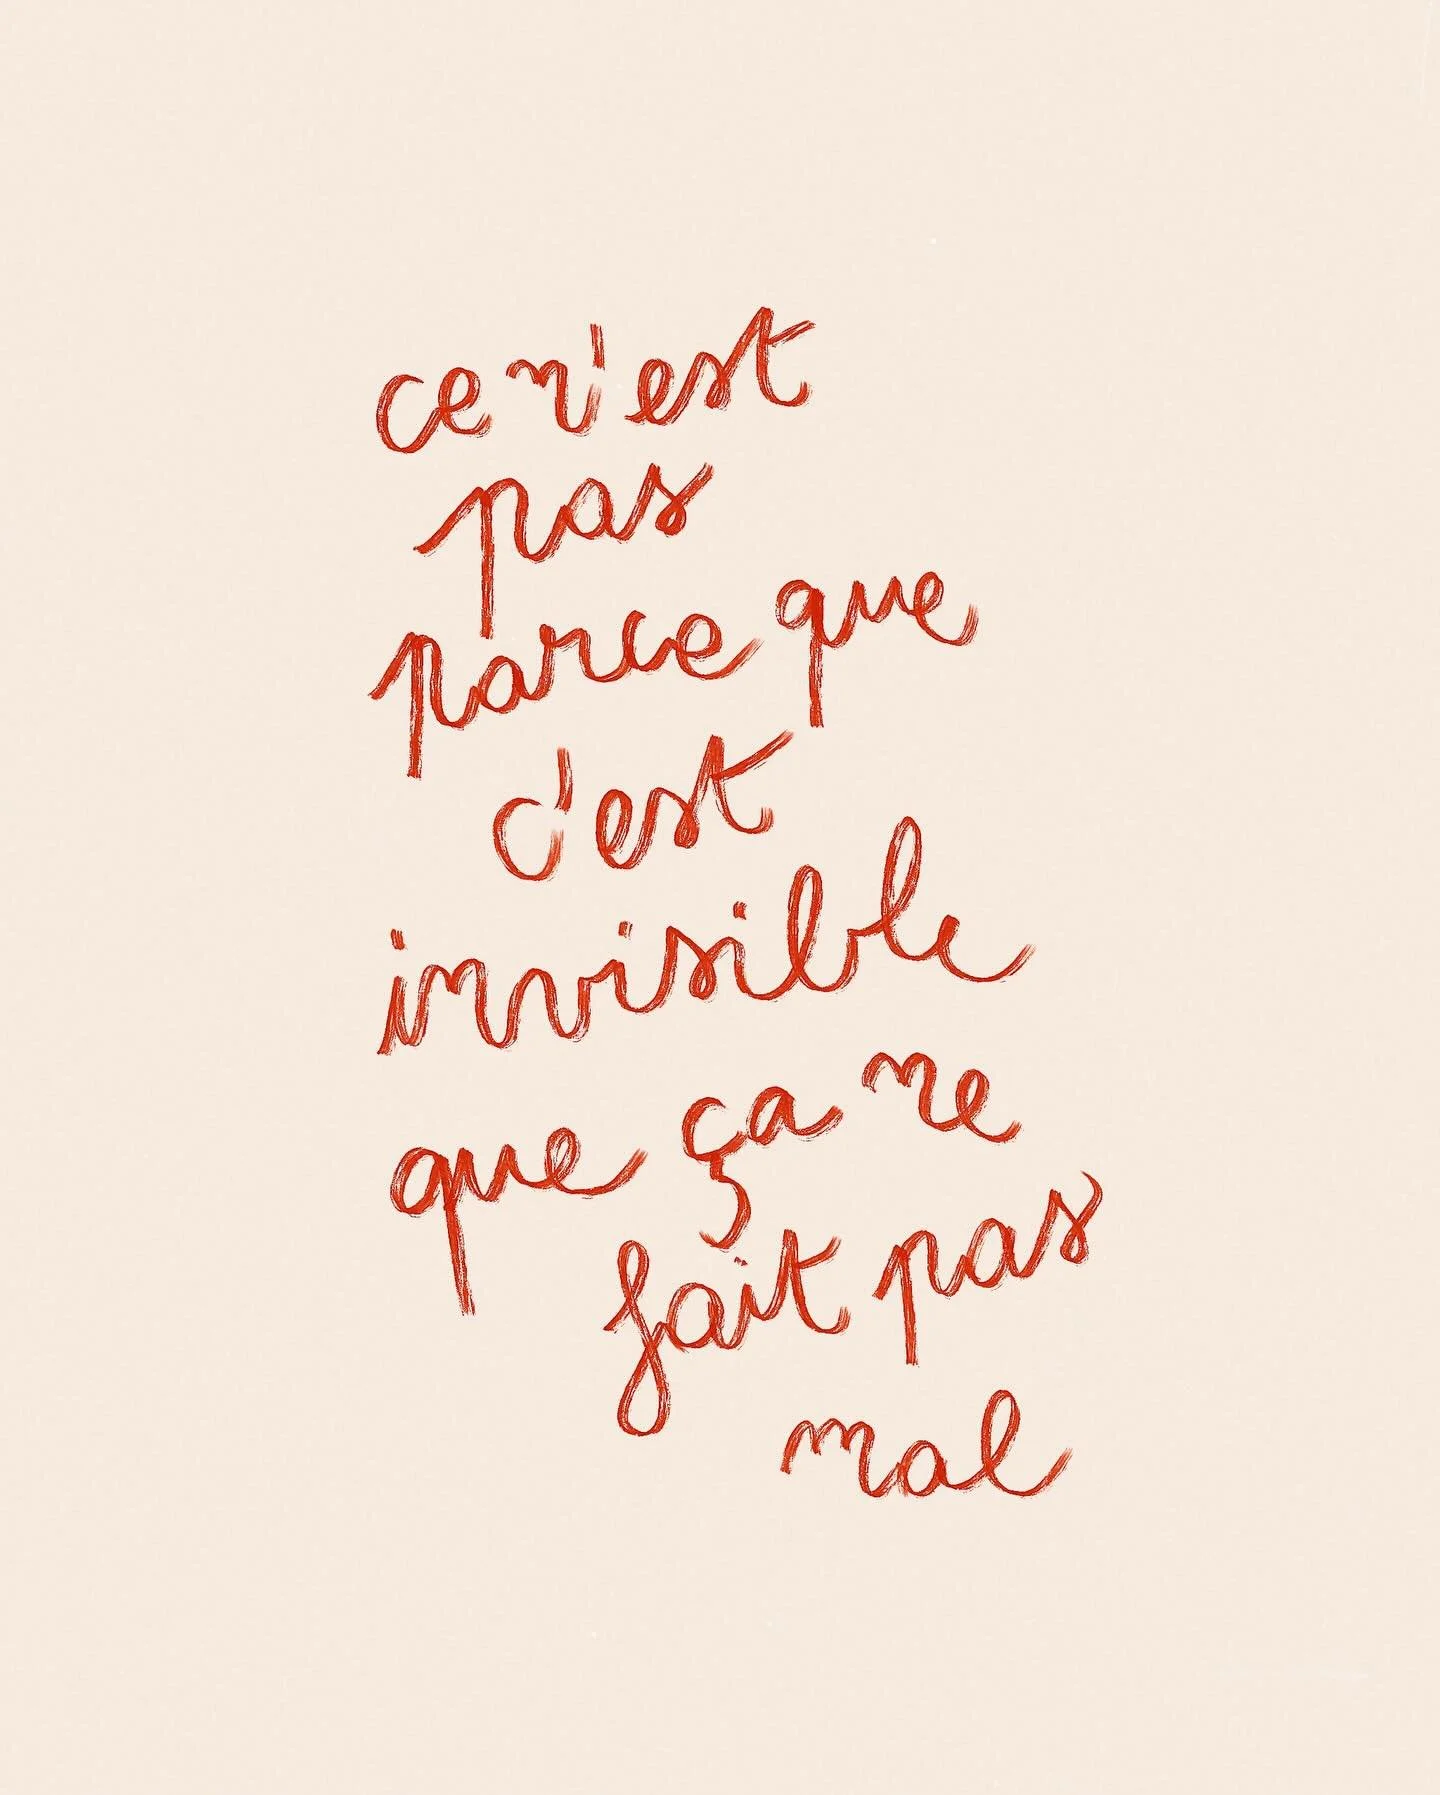 ce n'est
pas
parce que
c'est
invisible
que ça ne
fait pas
mal